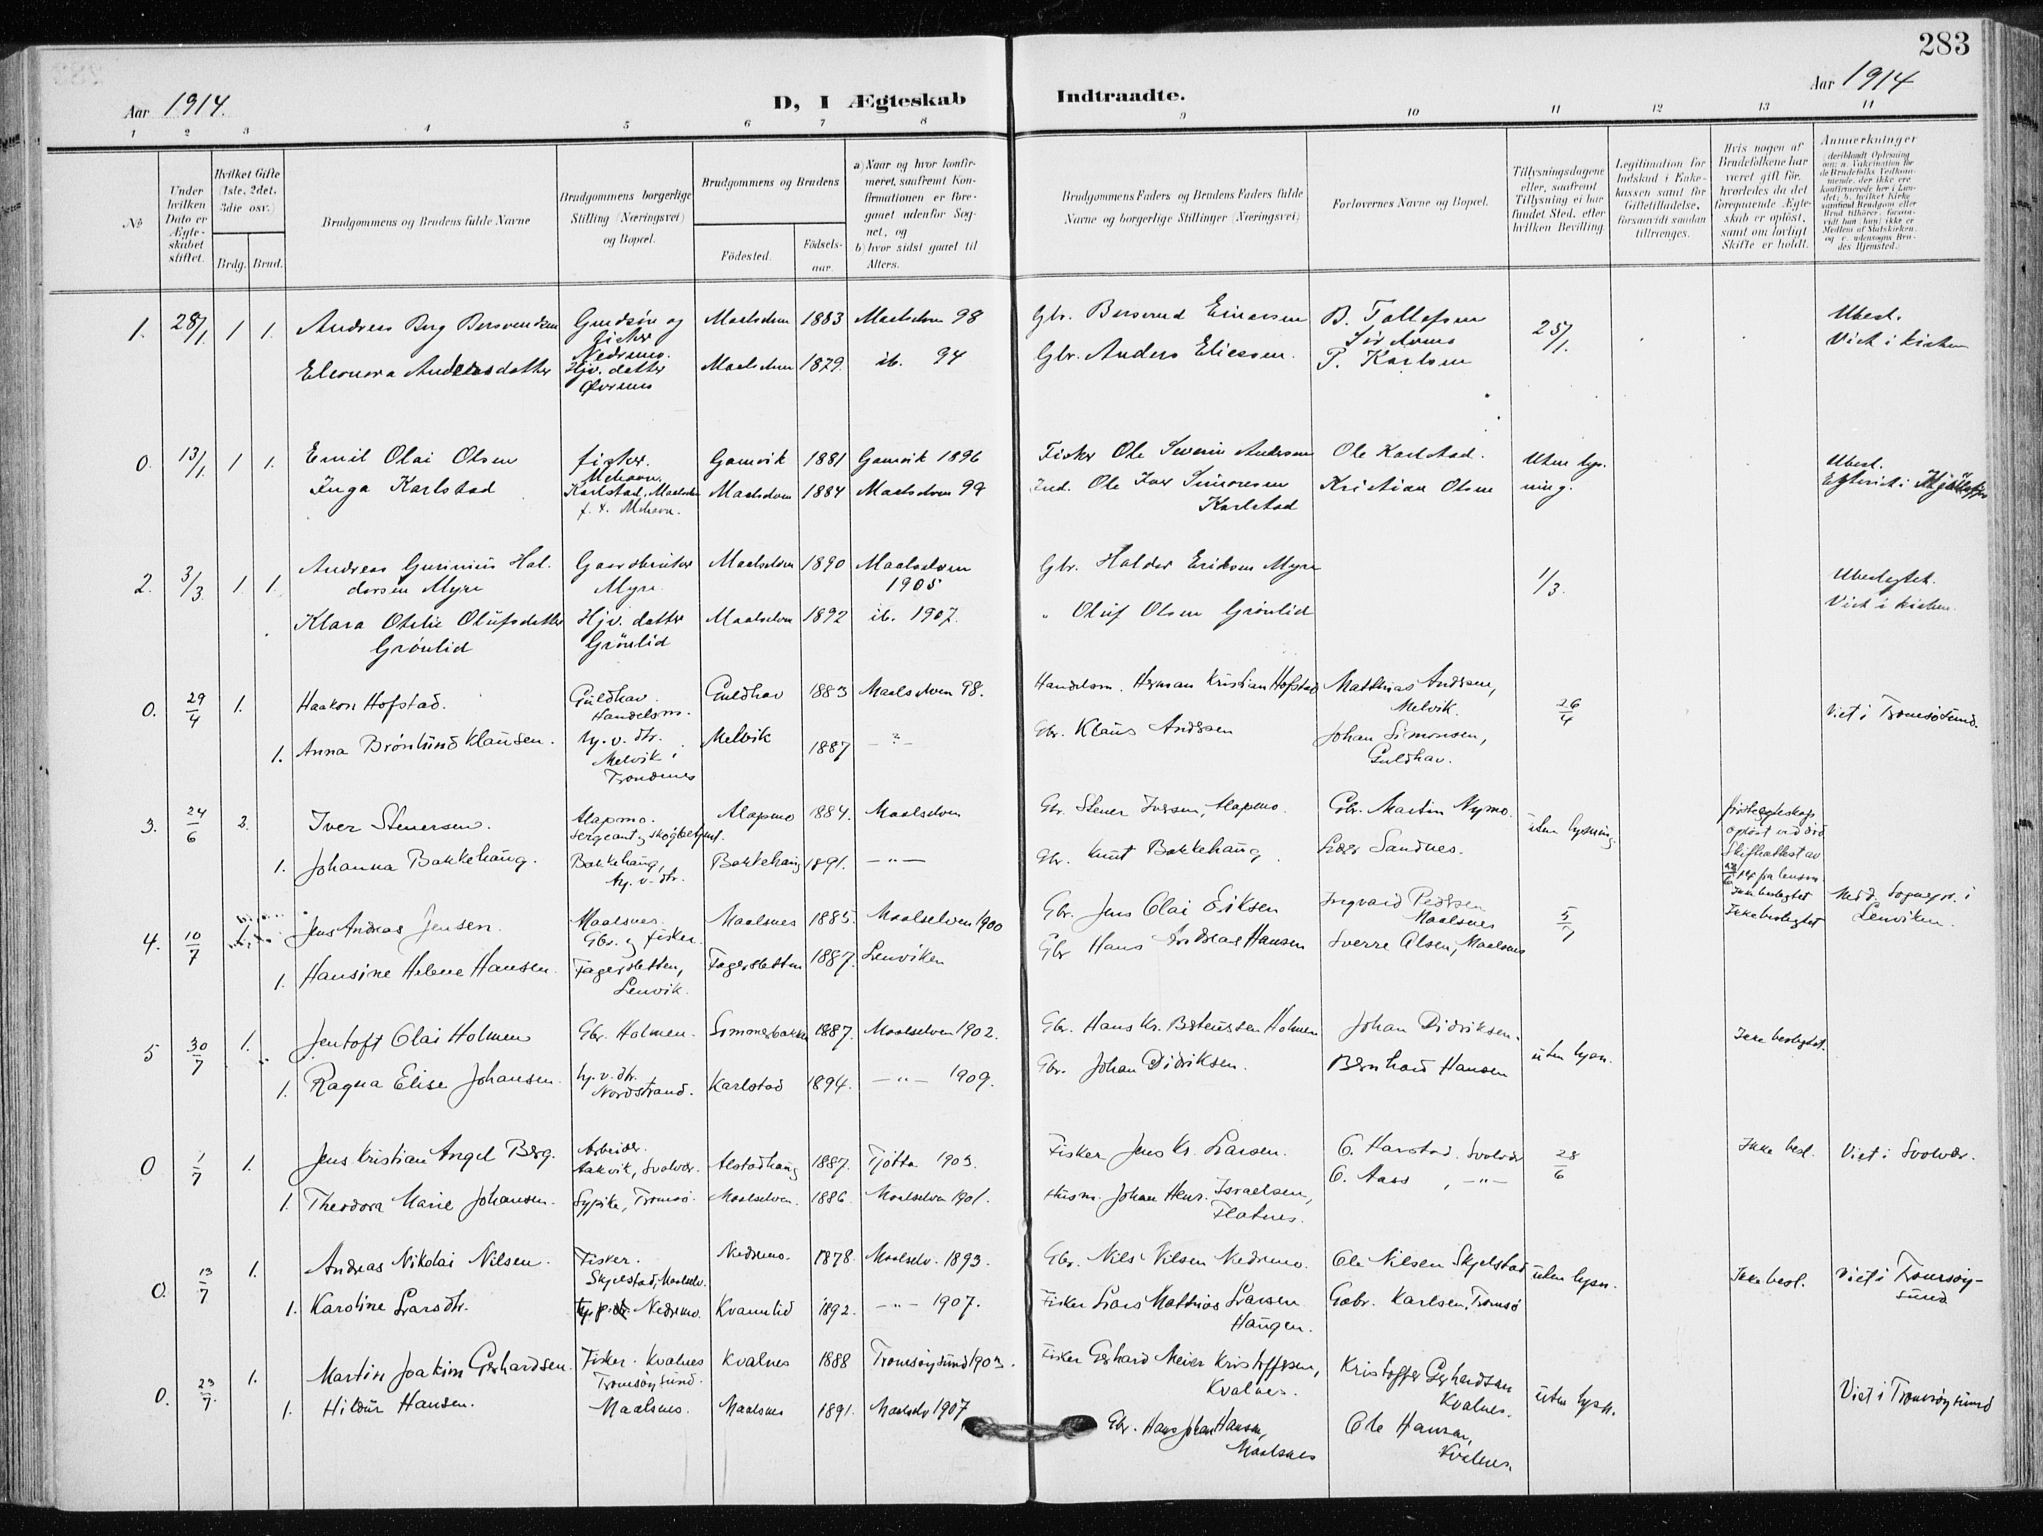 283
Aar 1914.
D, I Ægteskab Indtraadte.
Aar 1914
1 2 3 4 5 6 7 8 9 10 11 12 13 14
No
Under hvilken Dato er Ægteskabet stiftet.
Hvilket Gifte (1ste, 2det, 3die osv.)
Brdg. Brud.
Brudgommens og Brudens fulde Navne
Brudgommens borgerlige Stilling (Næringsvei) og Bopæl.
Brudgommens og Brudens
Fødested.
Fødsels-aar.
a) Naar og hvor konfirmeret, saafremt Konfirmationen er foregaaet udenfor Sognet, og
b) hvor sidst gaaet til Alters.
Brudgommens Faders og Brudens Faders fulde Navne og borgerlige Stillinger (Næringsvei)
Forlovernes Navne og Bopæl.
Tillysningsdagene eller, saafremt Tillysning ei har fundet Sted, efter hvilken Bevilling.
Legitimation for Indskud i Enkekassen samt for Giftetilladelse, forsaavidt saadan tiltrænges.
Hvis nogen af Brudefolkene har været gift før, hvorledes da det foregaaende Ægteskab er opløst, samt om lovligt Skifte er holdt.
Anmerkninger
1. 28/1 1 1. Andreas Berg Bersvendsen Gaardsøn og fisker Nedremo. Maalselven 1883 Maalselven 98 Gbr. Bersvend Einarsen B. Tollefsen 25/1. Ubesl.
Eleonora Andersdatter Hjv. datter Øvremo Maalselven 1879. ib. 94 Gbr. Anders Ellesen. P. Karlsen Viet i kirken
0. 13/1 1 1. Emil Olai Olsen fisker. Mehavn. Gamvik 1881 Gamvik 1896 Fisker Ole Severin Andersen Ole Karlstad. Uten lysning. Ubesl.
Inga Karlstad Karlstad, Maalselven f. t. Mehavn. Maalselven 1884 Maalselven 99 Ind. Ole Iver Simonsen Karlstad Kristian Olsen
2. 3/3 1. 1. Andreas Gurinius Haldorsen Myre Gaardbruker Myre. Maalselven 1890 Maalselven 1905 Gbr. Haldor Eriksen Myre 1/3. Ubeslegtet.
Klara Otelie Olufsdatter Grønlid Hjv. datter Grönlid Maalselven 1892 ib. 1907. " Oluf Olsen Grønlid Viet i kirken.
0. 29/4 1. Haakon Hofstad. Guldhav. Handelsm. Guldhav 1883 Maalselven 98. Handelsm. Herman Kristian Hofstad Matthias Andersen, Melvik. 26/4 Viet i Tromsøsund.
1. Anna Brønlund Klausen. hj. v. dtr. Melvik i Trondenes Melvik 1887 — ? — Gbr. Klaus Andersen Johan Simonsen, Guldhav.
3. 24/6 2. Iver Stenersen. Alapmo. Sergeant og skogbetjent. Alapmo 1884. Maalselven Gbr. Stener Iversen, Alapmo. Gbr. Martin Nymo. uten lysning første egteskap opløst ved død Skifteattest av
1. Johanna Bakkehaug. Bakkehaug, hj. v. dtr. Bakkehaug 1891. — " — Gbr. Knut Bakkehaug. Peder Sandnes. Ikke beslegtet
4. 10/7 Jens Andreas Jensen. Maalsnes. Gbr. og fisker. Maalsnes 1885. Maalselven 1900 Gbr. Jens Olai Eriksen Ingvard Pedersen Maalsnes 5/7 Ikke beslegtet Med. Sognepr. i Lenviken.
1. Hansine Helene Hansen. Fagersletten, Lenvik. Fagersletten 1887. Lenviken Gbr Hans Andreas Hansen Sverre Olsen, Maalsnes
5 30/7 1. Jentoft Olai Holmen Gbr. Holmen. Sommerbakken 1887. Maalselven 1902. Gbr. Hans Kr. Berteussen Holmen Johan Didriksen. uten lysn. Ikke beslegtet.
1. Ragna Elise Johansen. hj. v. dtr. Nordstrand. Karlstad 1894. — " — 1909. Gbr. Johan Didriksen. Bernhard Hansen
0 1/7 1. Jens Kristian Angel Berg. Arbeider. Aakvik, Svolvær. Alstadhaug 1887. Tjøtta 1903. Fisker Jens Kr. Larsen. O. Harstad, Svolvær 28/6 Ikke besl. Viet i Svolvær.
1. Theodora Marie Johansen. Sypike, Tromsø. Maalselven. 1886. Maalselven 1901. Husm. Johan Henr. Israelsen, Flatnes. O. Aas, — " —
0. 13/7 1. Andreas Nikolai Nilsen. Fisker. Skjelstad, Maalselv. Nedremo. 1878. Maalselv. 1893. Gbr. Nils Nilsen Nedremo. Ole Nilsen Skjelstad uten lysn. Ikke besl. Viet i Tromsøysund
1. Karoline Larsdtr. Nedremo. Kvannlid 1892. — " — 1907. Fisker Lars Mathias Larsen Haugen. Gabr. Karlsen, Tromsø
0. 23/7. 1. Martin Joakim Gerhardsen. Fisker. Kvalnes Tromsøysund. Kvalnes 1888 Tromsøysund 1903. Fisker Gerhard Meier Kristoffersen, Kvalnes. Kristoffer Gerhardsen Kvalnes. uten lysn. Viet i Tromsøysund
1. Hildur Hansen. Maalsnes. Maalsnes 1891. Maalselv 1907 Gbr. Hans Johan Hansen, Maalsnes Ole Hansen, Kvalnes.